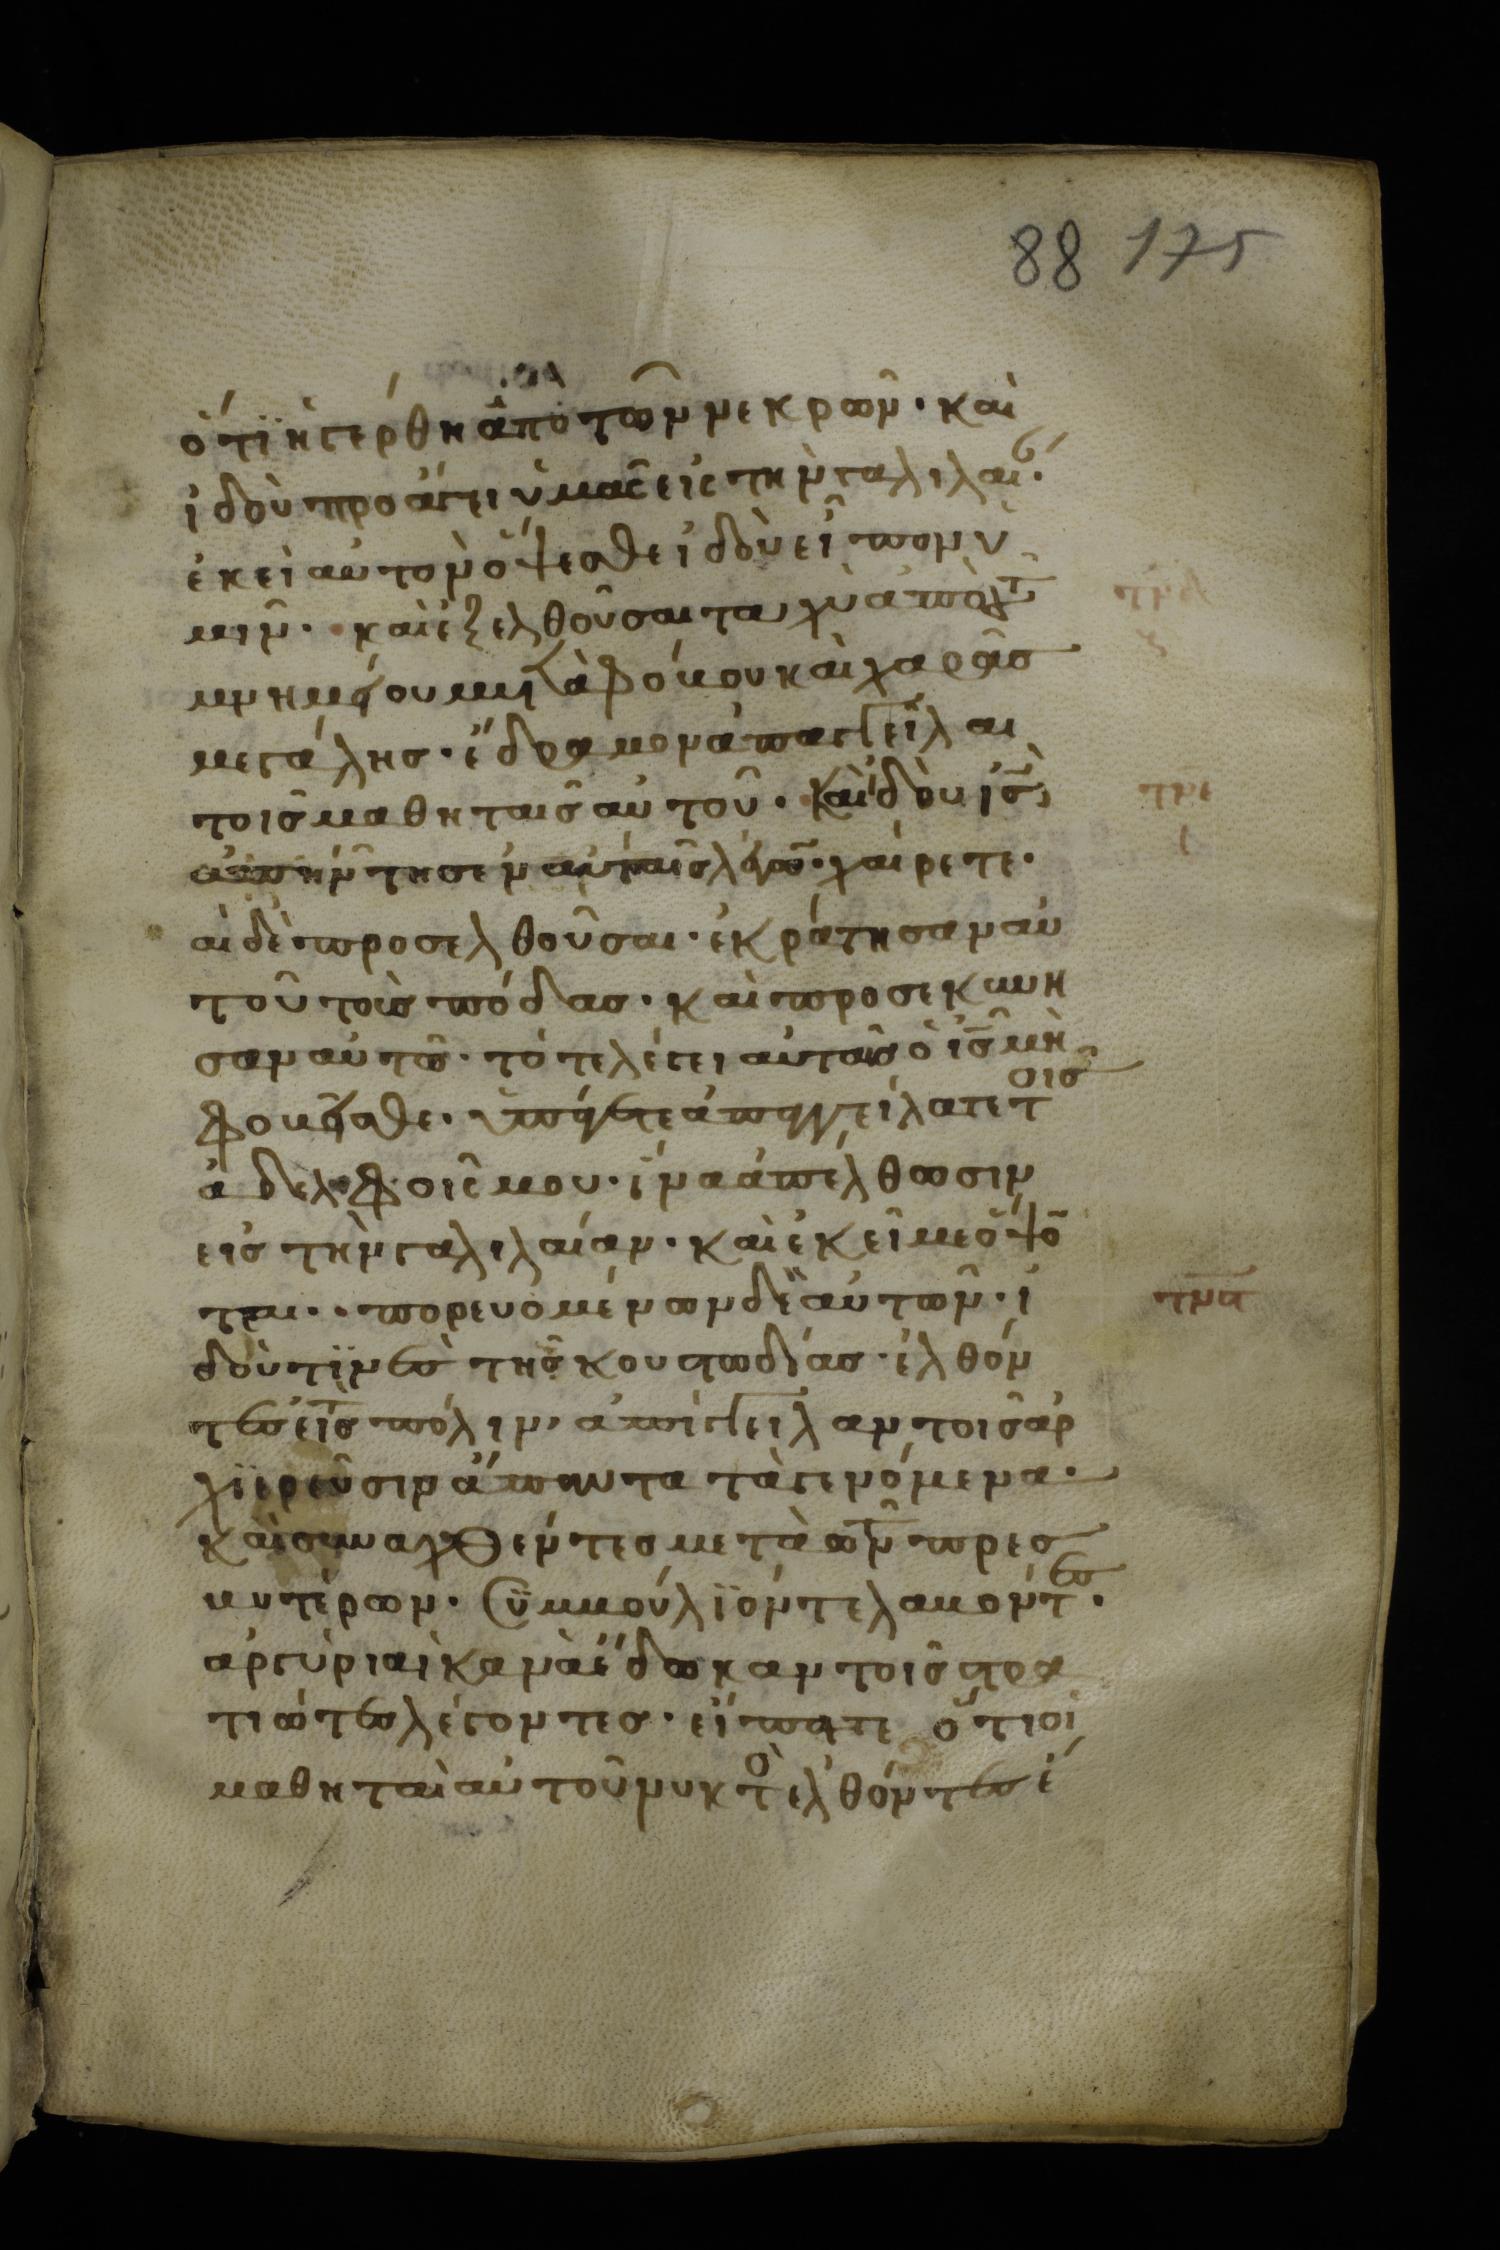 88 175
ὅτι ἠγέρθη ἀπὸ τῶν νεκρῶν· καὶ
ἰδοὺ προάγει ὑμᾶς εἰς τὴν γαλιλαί·
ἐκεῖ αὐτὸν ὄψεσθε ἰδοὺ εἶπον ὑ
μῖν· καὶ ἐξελθοῦσαι ταχὺ ἀπὸ τ
μνημείου μετὰ φόβου καὶ χαρᾶς
μεγάλης· ἔδραμον ἀπαγγεῖλαι
τοῖς μαθηταῖς αὐτοῦ· καὶ ἰδοὺ ις
ἀπήντησεν αὐταῖς λέγων· χαίρετε·
αἱ δὲ προσελθοῦσαι· ἐκράτησαν αὐ
τοῦ τοὺς πόδας· καὶ προσεκύνη
σαν αὐτῶ· τότε λέγει αὐταῖς ὁ ις μὴ
φοβεῖσθε· ὑπάγετε ἀπαγγείλατε τοῖς
ἀδελφοῖς μου· ἵνα ἀπέλθωσιν
εἰς τὴν γαλιλαίαν· καὶ ἐκεῖ με ὄψο
ται· πορευομένων δὲ αὐτῶν· ἰ
δού τινες τῆς κουστωδίας· ἐλθόν
τες εἰς τ πόλιν, ἀπήγγειλαν τοῖς ἀρ
χιερεῦσιν ἅπαντα τὰ γενόμενα·
καὶ συναχθέντες μετὰ τῶν πρεσ
βυτέρων· συμβούλιόν τε λαβόντες·
ἀργύρια ἱκανὰ ἔδωκαν τοῖς στρα
τιώταις λέγοντες· εἴπατε ὅτι οἱ
μαθηταὶ αὐτοῦ νυκτὸ ἐλθόντες ἔ
τμε
τμϛ